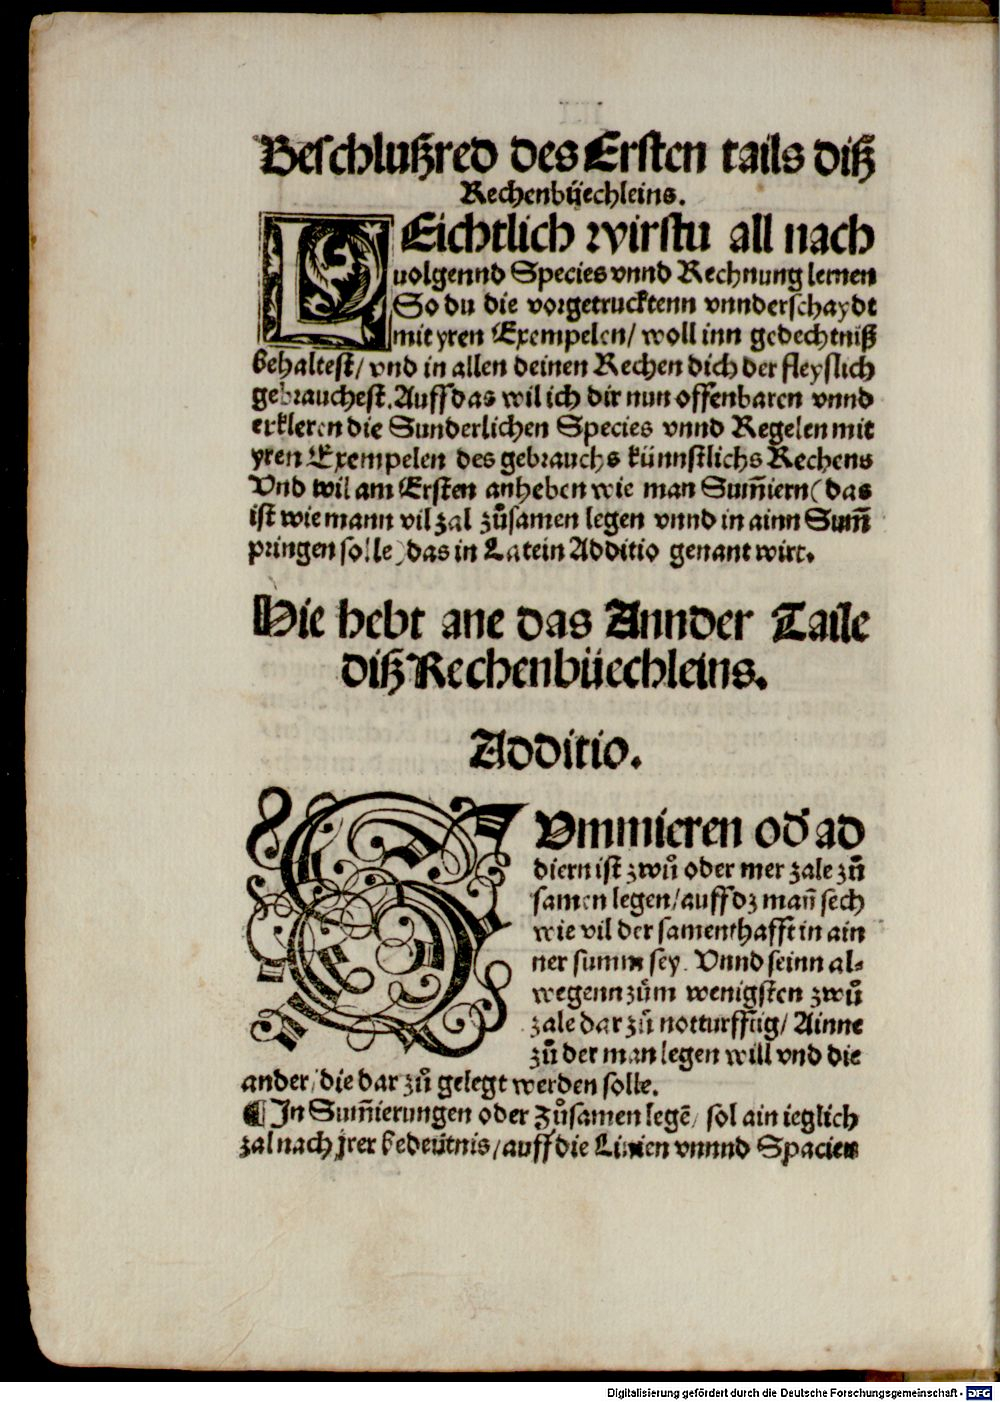 Beschlußred des Ersten tails diß
Rechenbüechleins.
LEichtlich wirstu all nach
uolgennd Species vnnd Rechnung lernen
So du die vorgetrucktenn vnnderschaydt
mit yren Exempelen/ woll inn gedechtniß
behaltest/ vnd in allen deinen Rechen dich der fleyslich
gebrauchest. Auff das wil ich dir nun offenbaren vnnd
erkleren die Sunderlichen Species vnnd Regelen mit
yren Exempelen des gebrauchs künnstlichs Rechens
Vnd wil am Ersten anheben wie man Sum̄iern (das
ist wie mann vil zal zůsamen legen vnnd in ainn Sum̄
pringen solle) das in Latein Additio genant wirt.
Hie hebt ane das Annder Taile
diß Rechenbüechleins.
Additio.
SVmmieren od̕ ad
diern ist zwů oder mer zale zů
samen legen/ auff dz man̄ sech
wie vil der samenthafft in ain
ner summ sey. Vnnd seinn al⸗
wegenn zům wenigsten zwů
zale dar zů notturfftig/ Ainne
zů der man legen will vnd die
ander/ die dar zů gelegt werden solle.
¶ In Sum̄ierungen oder Zůsamen legē/ sol ain ieglich
zal nach jrer bedeütnis/ auff die Linien vnnnd Spacien
Digitalisierung gefördert durch die Deutsche Forschungsgemeinschaft - DFG